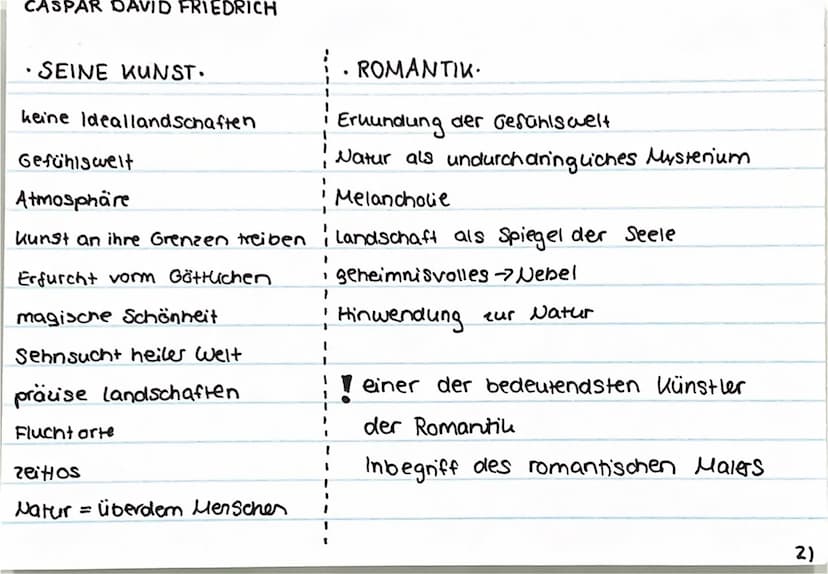 CASPAR DAVID FRIEDRICH
· SEINE KUNST ·
keine Ideallandschaften
Gefühlswelt
Atmosphäre
Kunst an ihre Grenzen treiben
Erfurcht vorm Göttlichen
magische Schönheit
Sehnsucht heiler Welt
präzise Landschaften
Fluchtorte
zeitlos
Natur = überdem Menschen
· ROMANTIK ·
Erkundung der Gefühlswelt
Natur als undurchdringliches Mysterium
Melancholie
Landschaft als Spiegel der Seele
geheimnisvolles → Nebel
Hinwendung zur Natur
! einer der bedeutendsten Künstler
der Romantik
Inbegriff des romantischen Malers
2)